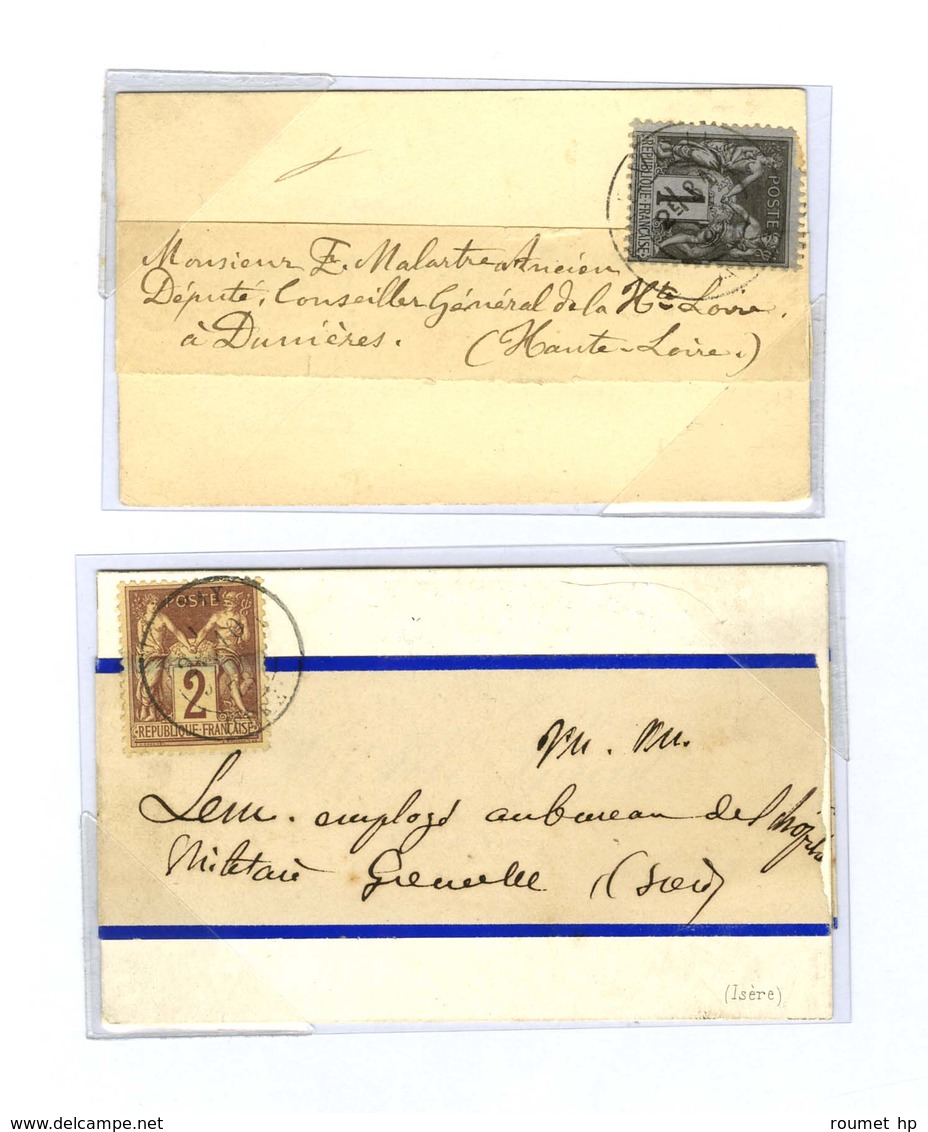 POSTE
1
REPUBLIQUE·FRANÇAISE
Monsieur E. Malartre Ancien
Député, Conseiller Général de la Hte Loire.
à Dunières. (Haute-Loire.)
POSTE
2
REPUBLIQUE·FRANÇAISE
employé au bureau de l'hopital
Militaire Grenoble (Isère)
(Isère)
www.delcampe.net
roumet hp